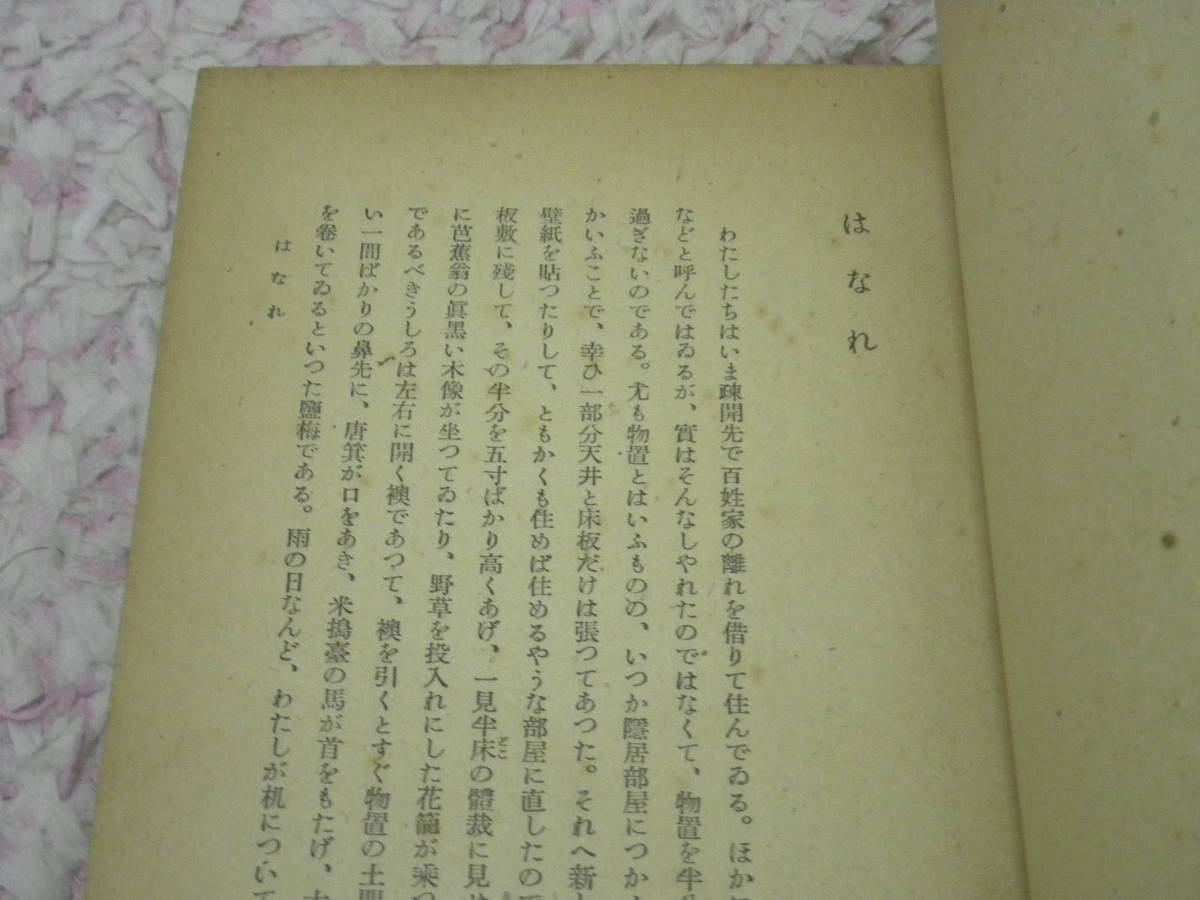 はなれ
わたしたちはいま疎開先で百姓家の離れを借りて住んでゐる。ほか
などと呼んではゐるが、實はそんなしやれたのではなくて、物置を半分
過ぎないのである。尤も物置とはいふものの、いつか隱居部屋につか
かいふことで、幸ひ一部分天井と床板だけは張つてあつた。それへ新
壁紙を貼つたりして、ともかくも住めば住めるやうな部屋に直したので
板敷に残して、その半分を五寸ばかり高くあげ、一見半床どこの體裁に見せ
に芭蕉翁の眞黑い木像が坐つてゐたり、野草を投入れにした花籠が乘つ
であるべきうしろは左右に開く襖であつて、襖を引くとすぐ物置の土間
い一間ばかりの鼻先に、唐箕が口をあき、米搗臺の馬が首をもたげ、
を卷いてゐるといつた鹽梅である。雨の日なんど、わたしが机について
はなれ